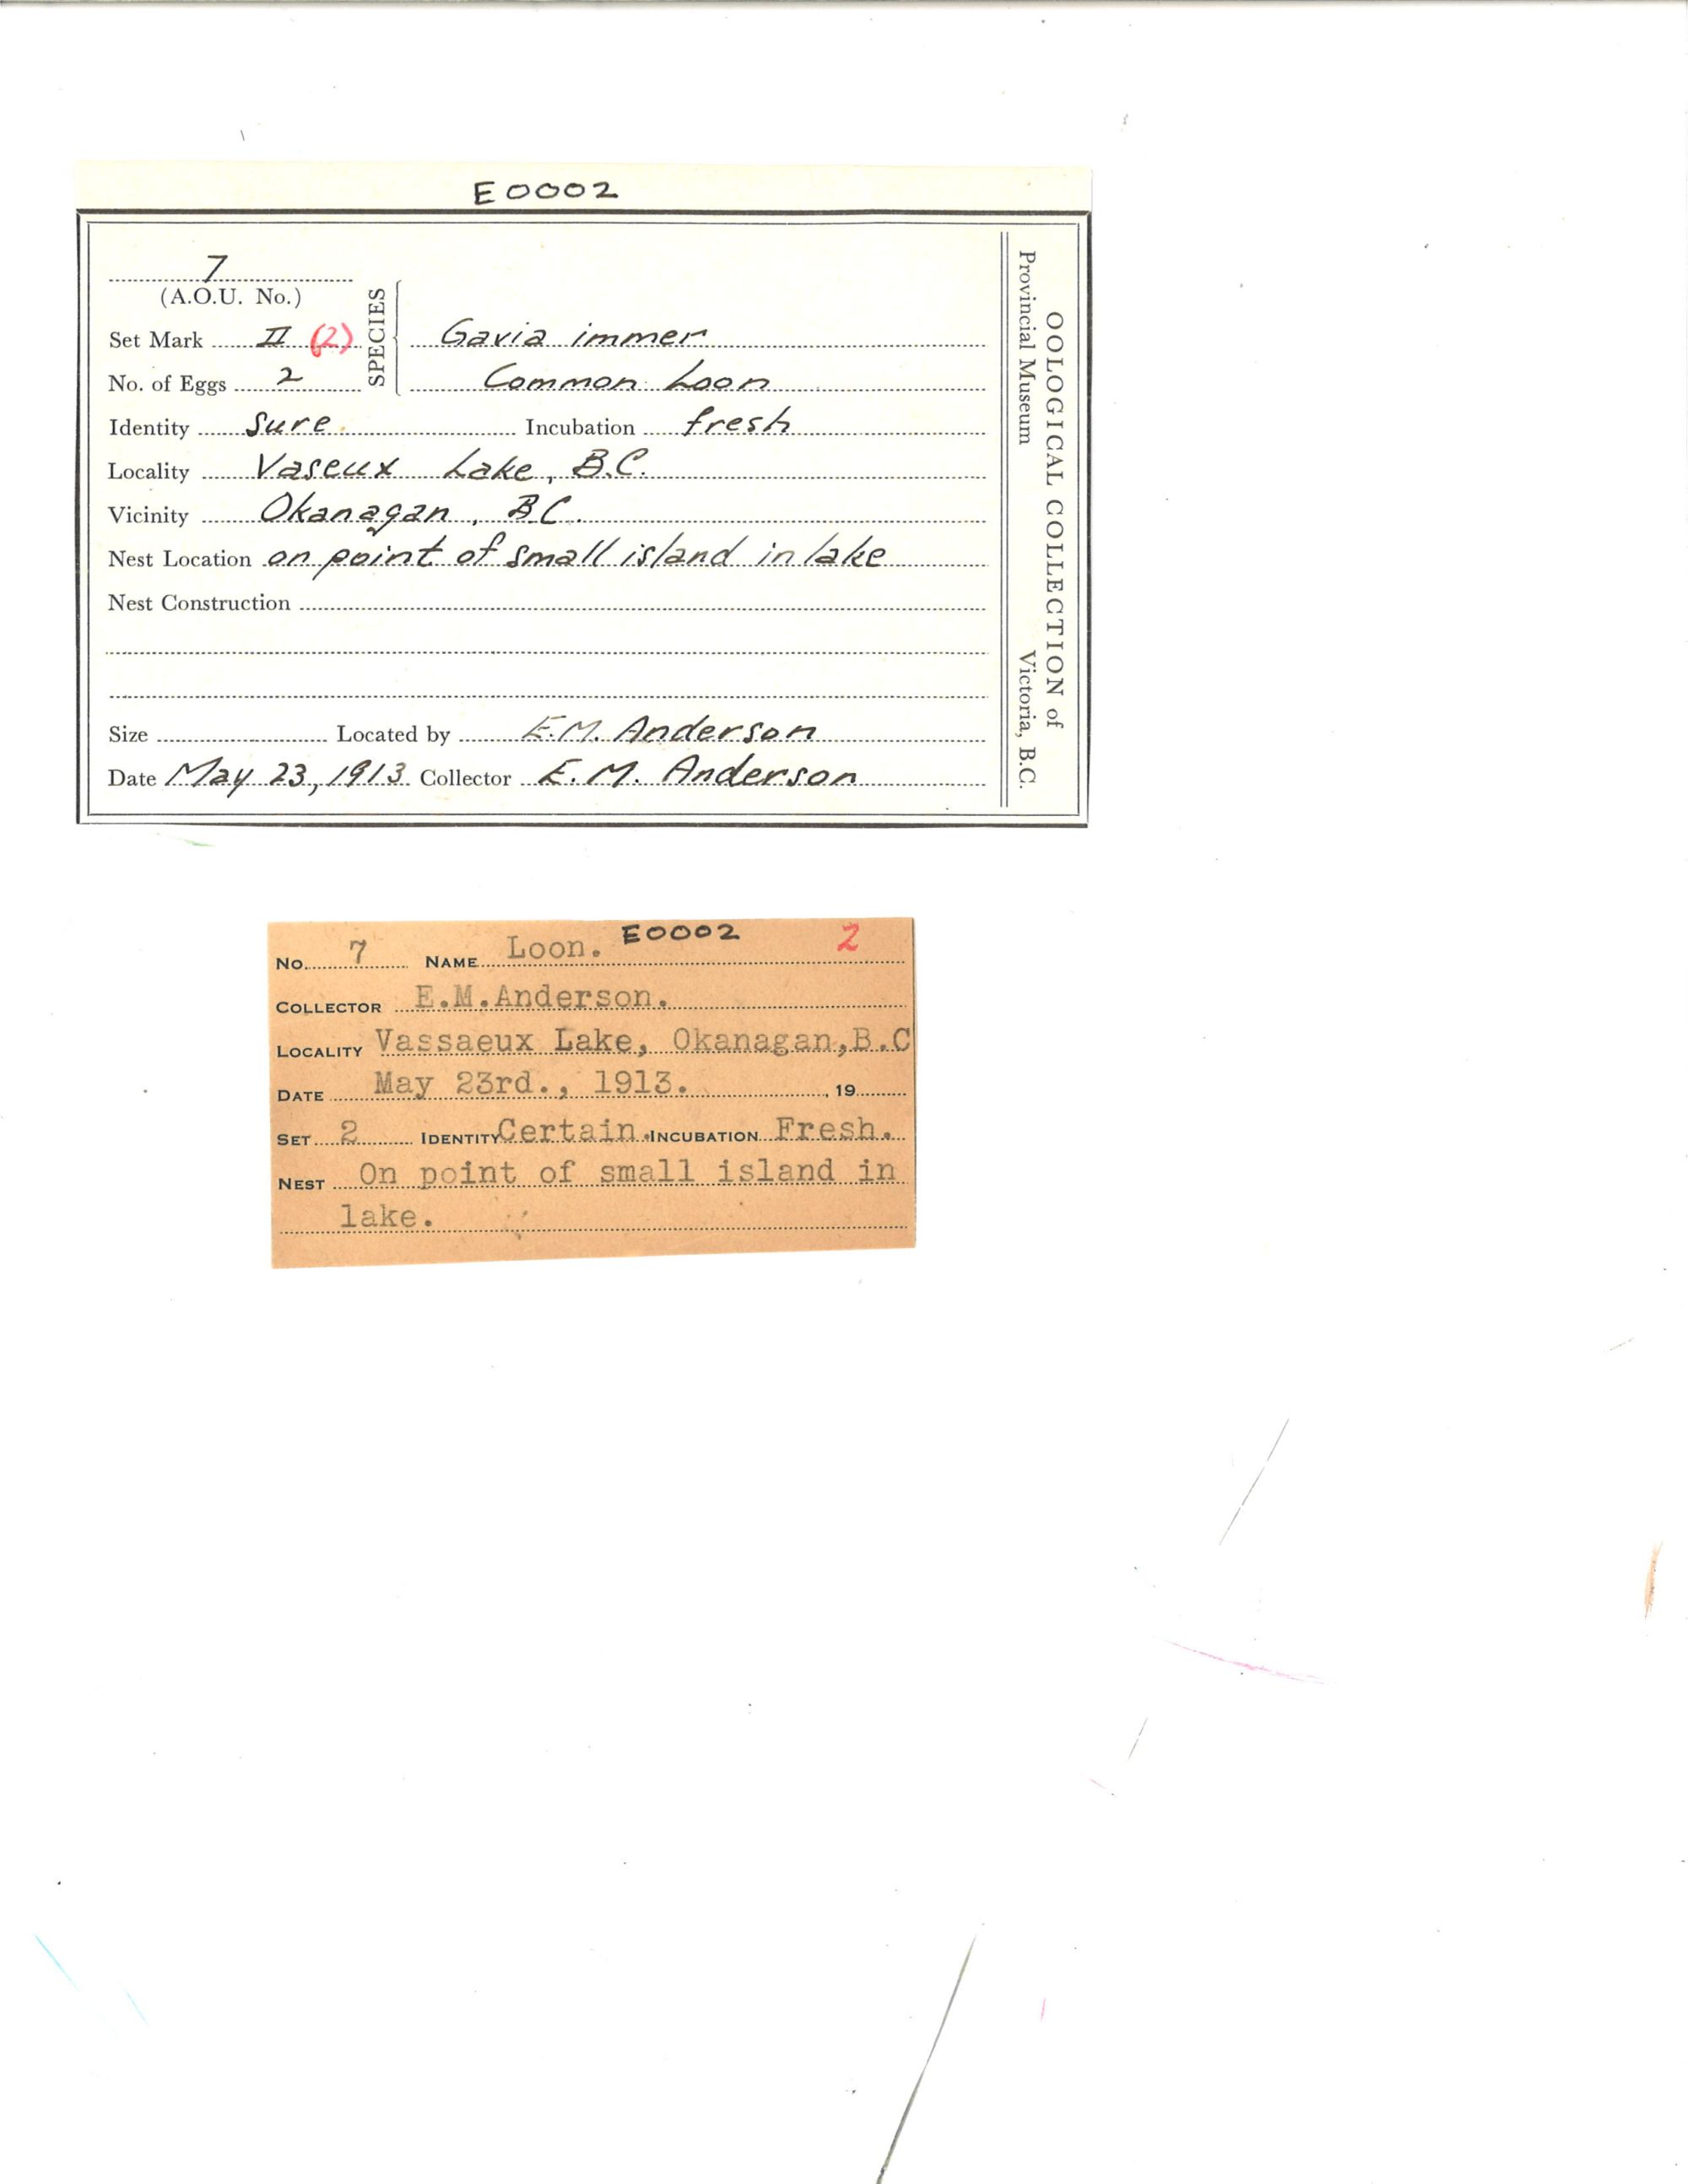 E0002
7
(A.O.U. No.)
SPECIES
Set Mark II (2) Gavia immer
No. of Eggs 2 Common Loon
Identity sure Incubation fresh
Locality Vaseux Lake, B.C.
Vicinity Okanagan, BC.
Nest Location on point of small island in lake
Nest Construction
Size Located by E.M. Anderson
Date May 23, 1913 Collector E. M. Anderson
OOLOGICAL COLLECTION of
Provincial Museum Victoria, B.C.
No. 7 NAME Loon. E0002 2
COLLECTOR E.M.Anderson.
LOCALITY Vassaeux Lake, Okanagan,B.C
DATE May 23rd., 1913. , 19
SET 2 IDENTITY Certain. INCUBATION Fresh.
NEST On point of small island in
lake.